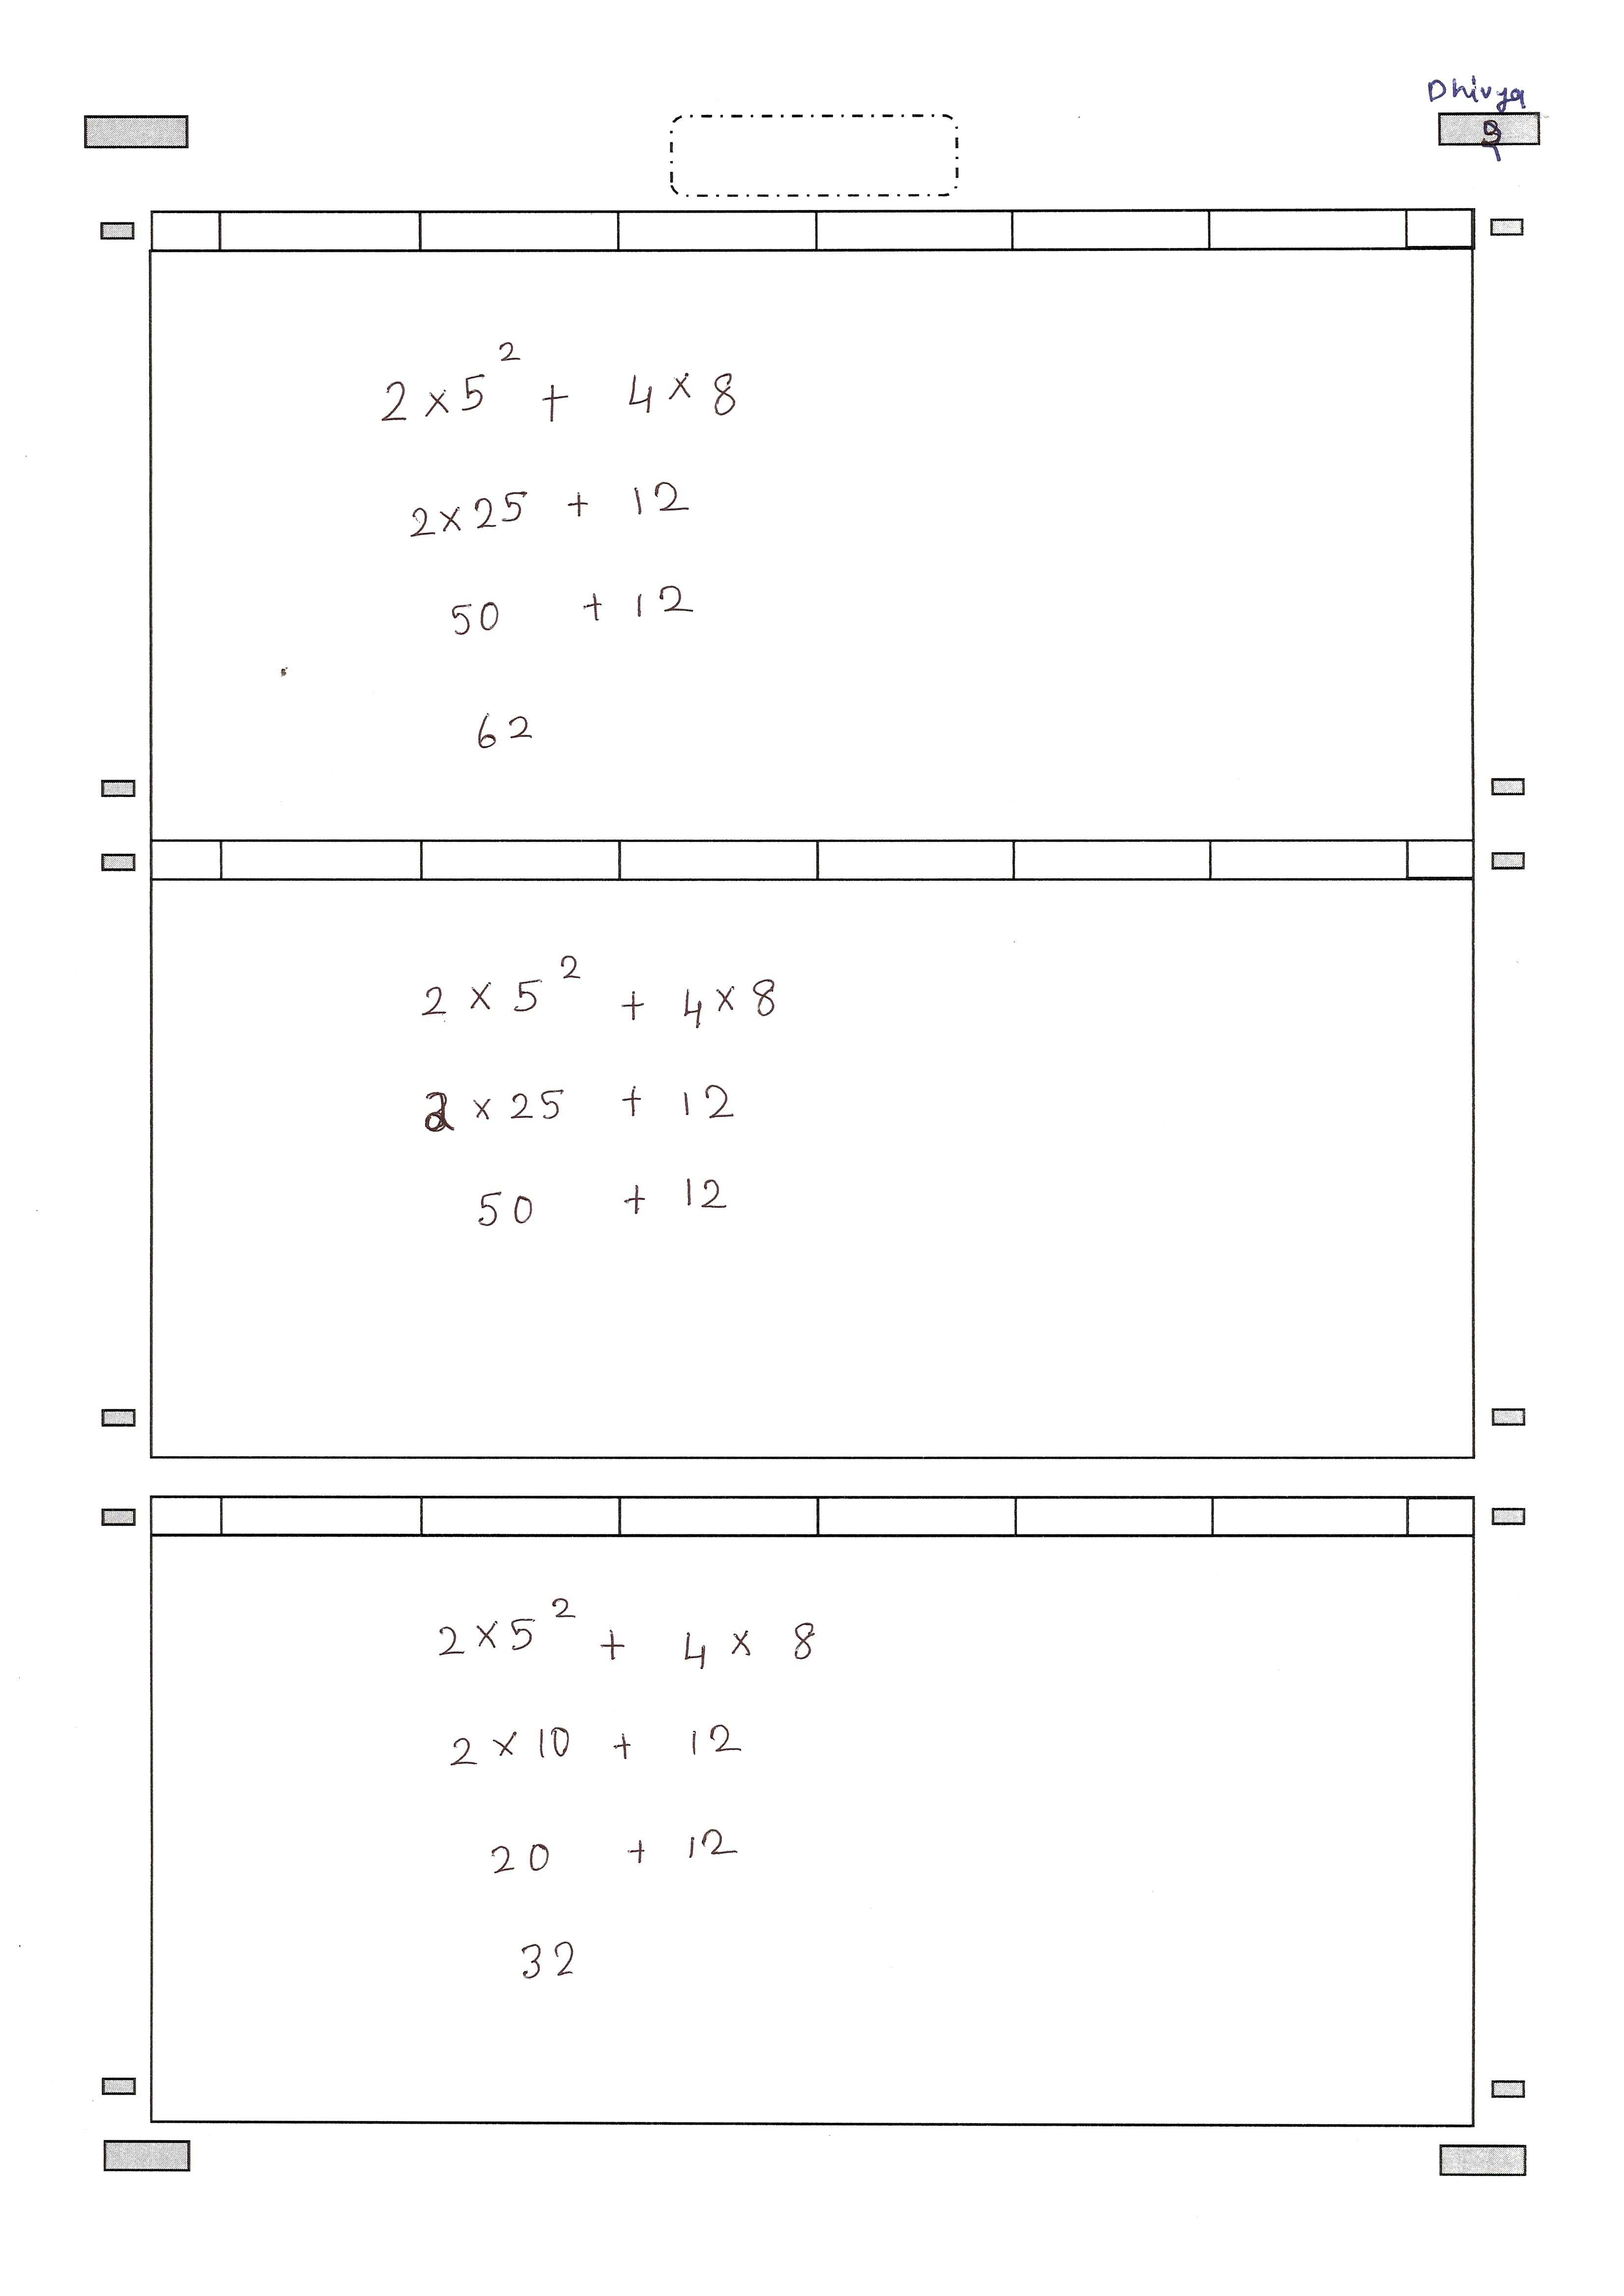 Dhivya
9
2 × 5² + 4 × 8
2 × 25 + 12
50 + 12
62
2 × 5² + 4 × 8
2 × 25 + 12
50 + 12
2 × 5² + 4 × 8
2 × 10 + 12
20 + 12
32